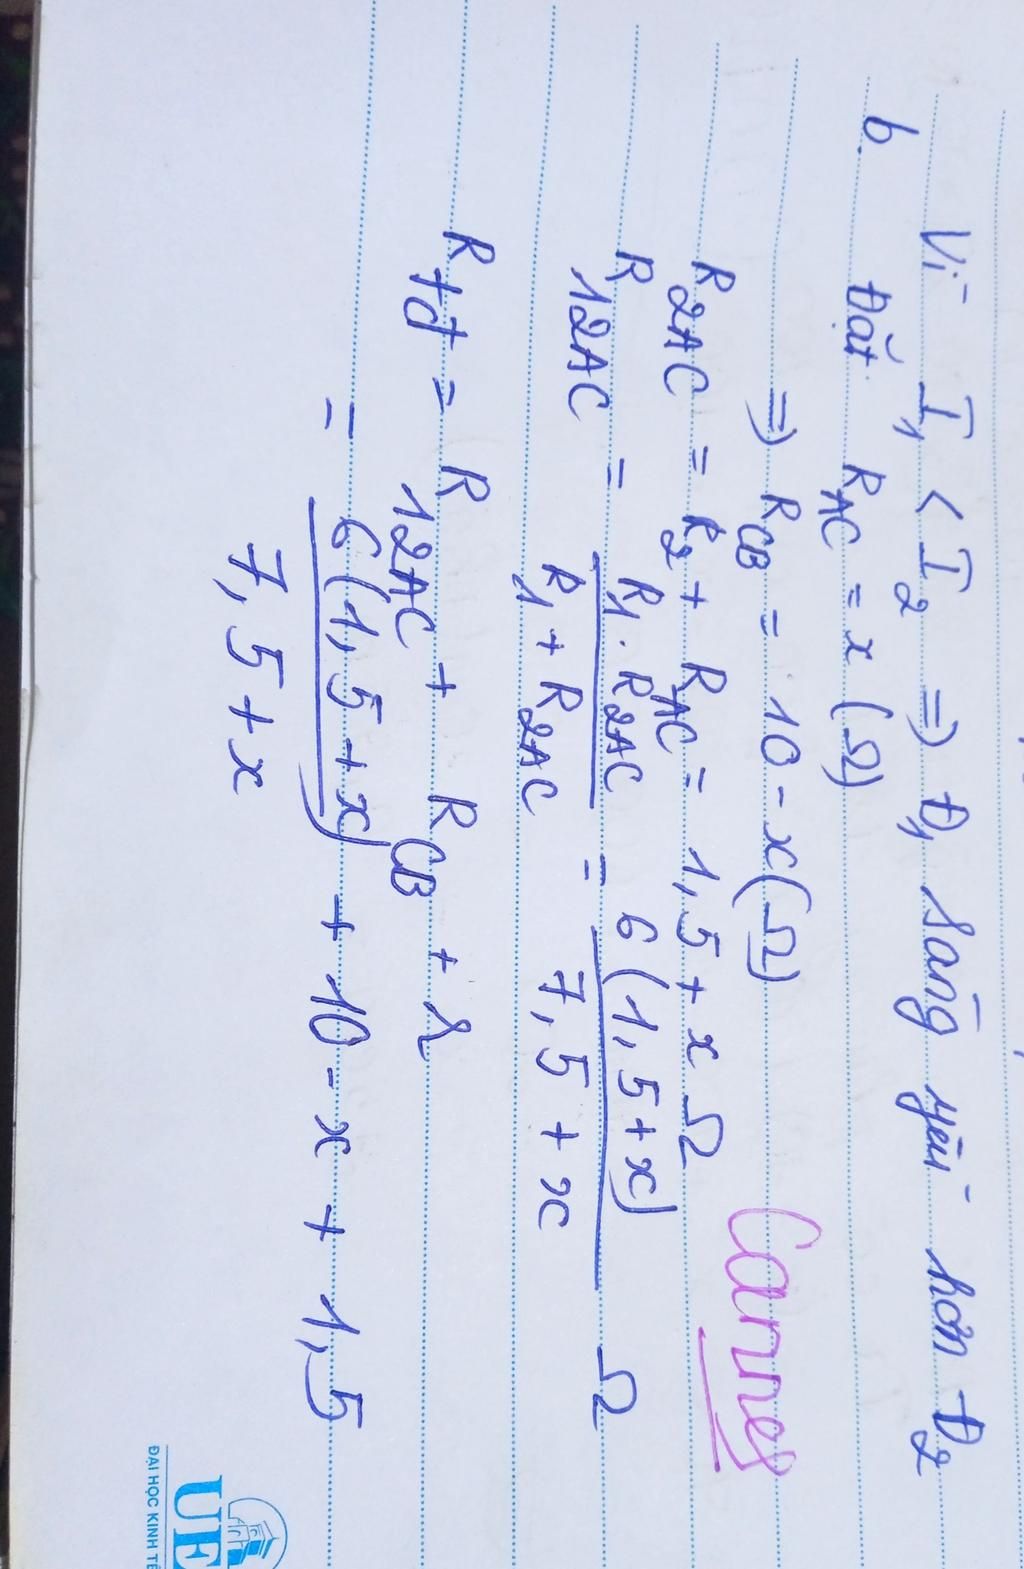 Vì I₁ < I₂ ⇒ Đ₁ sáng yếu hơn Đ₂
b. Đặt R_AC = x (Ω)
⇒ R_CB = 10 - x (Ω)
R_2AC = R₂ + R_AC = 1,5 + x Ω
Cannes
R_12AC = R₁ . R_2AC / R₁ + R_2AC = 6(1,5+x) / 7,5 + x Ω
R_tđ = R_12AC + R_CB + r
= 6(1,5+x) / 7,5 + x + 10 - x + 1,5
UE
ĐẠI HỌC KINH TẾ